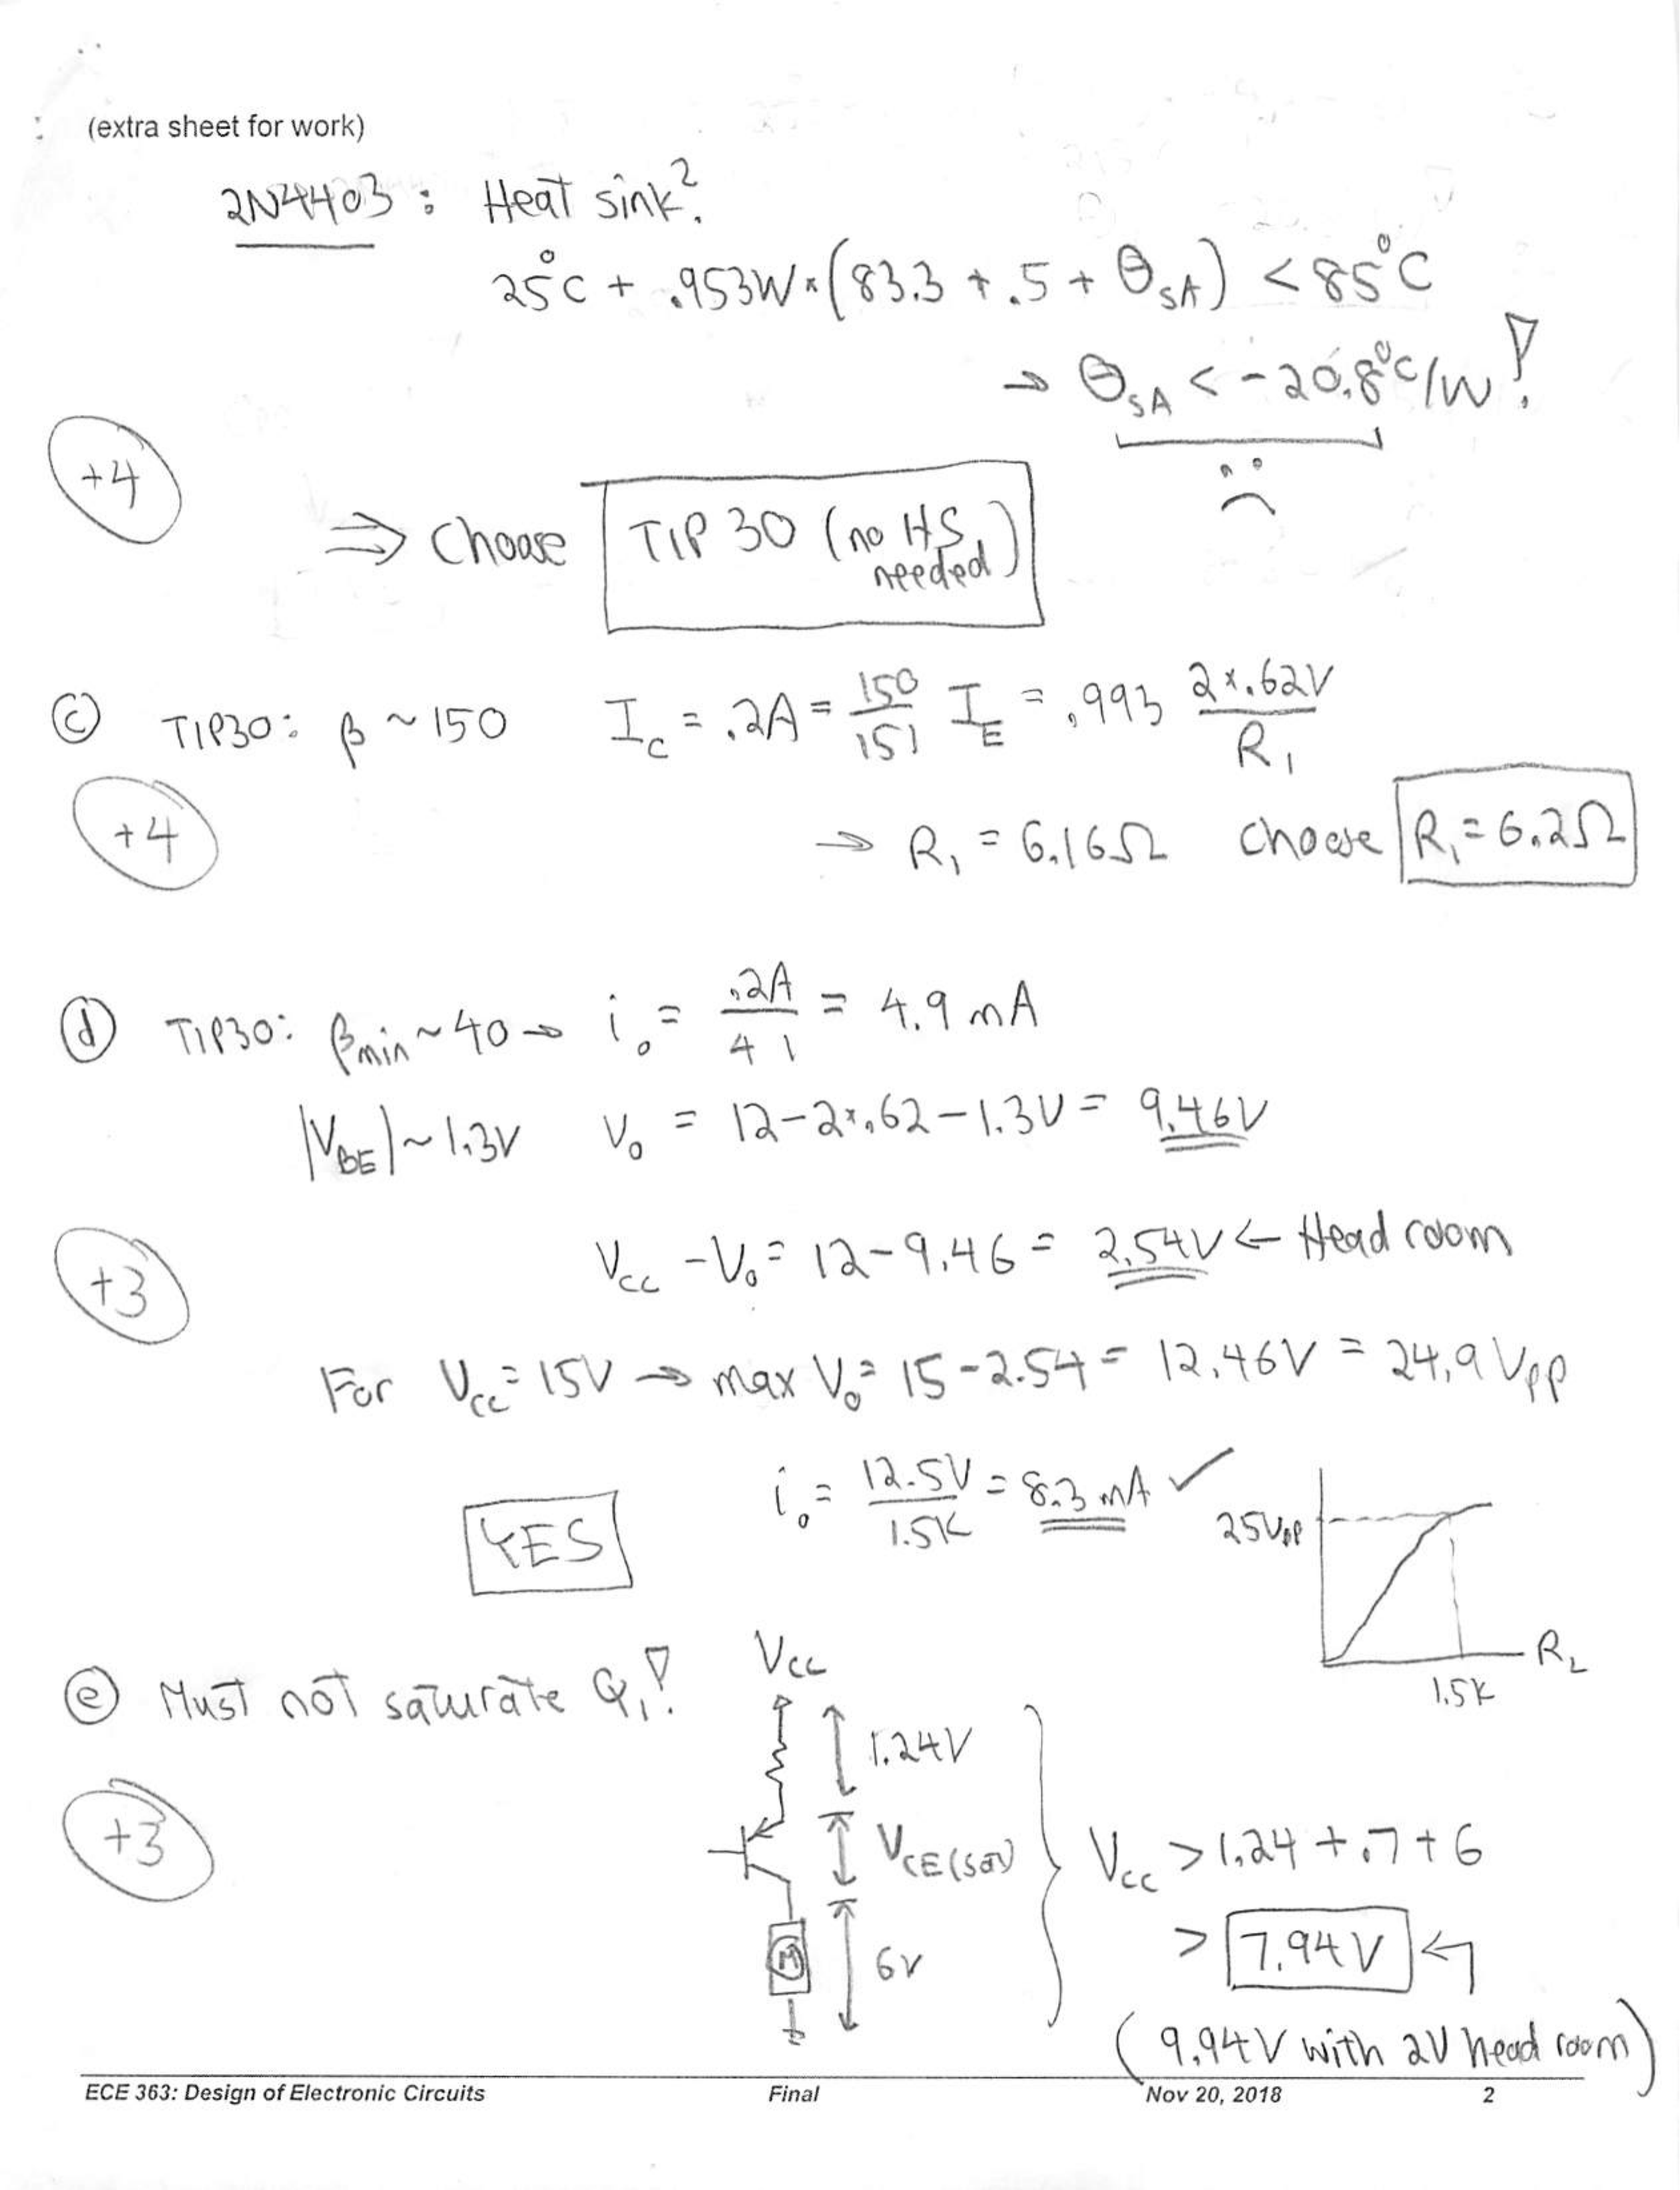 (extra sheet for work)
2N4403: Heat sink?
25°C + .953W×(83.3 + .5 + θSA) < 85°C
→ θSA < -20.8°C/W!
+4
⇒ Choose TIP 30 (no HS needed)
(c) TIP30: β ~ 150 IC = .2A = 150/151 IE = .993 2×.62V/R1
+4
→ R1 = 6.16Ω Choose R1 = 6.2Ω
(d) TIP30: βmin ~ 40 → io = .2A/41 = 4.9 mA
|VBE| ~ 1.3V Vo = 12-2×.62-1.3V = 9.46V
Vcc - Vo = 12-9.46 = 2.54V ← Head room
+3
For Vcc = 15V → max Vo = 15-2.54 = 12.46V = 24.9 Vpp
io = 12.5V/1.5K = 8.3 mA ✓
YES
25Vpp
RL
1.5K
(e) Must not saturate Q1!
Vcc
1.24V
+3
VCE(sat)
6V
M
Vcc > 1.24 + .7 + 6
> 7.94V ←
(9.94V with 2V head room)
ECE 363: Design of Electronic Circuits Final Nov 20, 2018 2